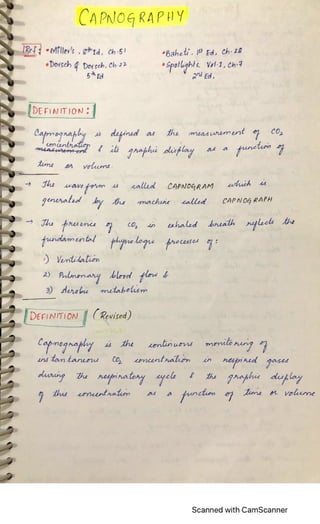 CAPNOGRAPHY
Ref: • Miller's, 8th Ed, Ch-51 • Baheti, 1st Ed, Ch-28
• Dorsch & Dorsch, Ch-22 • Spotlights Vol-1, Ch-7
5th Ed 2nd Ed.
DEFINITION:
Capnography is defined as the measurement of CO2
concentration & its graphic display as a function of
time or volume.
→ The waveform is called CAPNOGRAM which is
generated by the machine called CAPNOGRAPH
→ The presence of CO2 in exhaled breath reflects the
fundamental physiologic processes of:
1) Ventilation
2) Pulmonary blood flow &
3) Aerobic metabolism
DEFINITION (Revised)
Capnography is the continuous monitoring of
instantaneous CO2 concentration in respired gases
during the respiratory cycle & the graphic display
of this concentration as a function of time or volume
Scanned with CamScanner